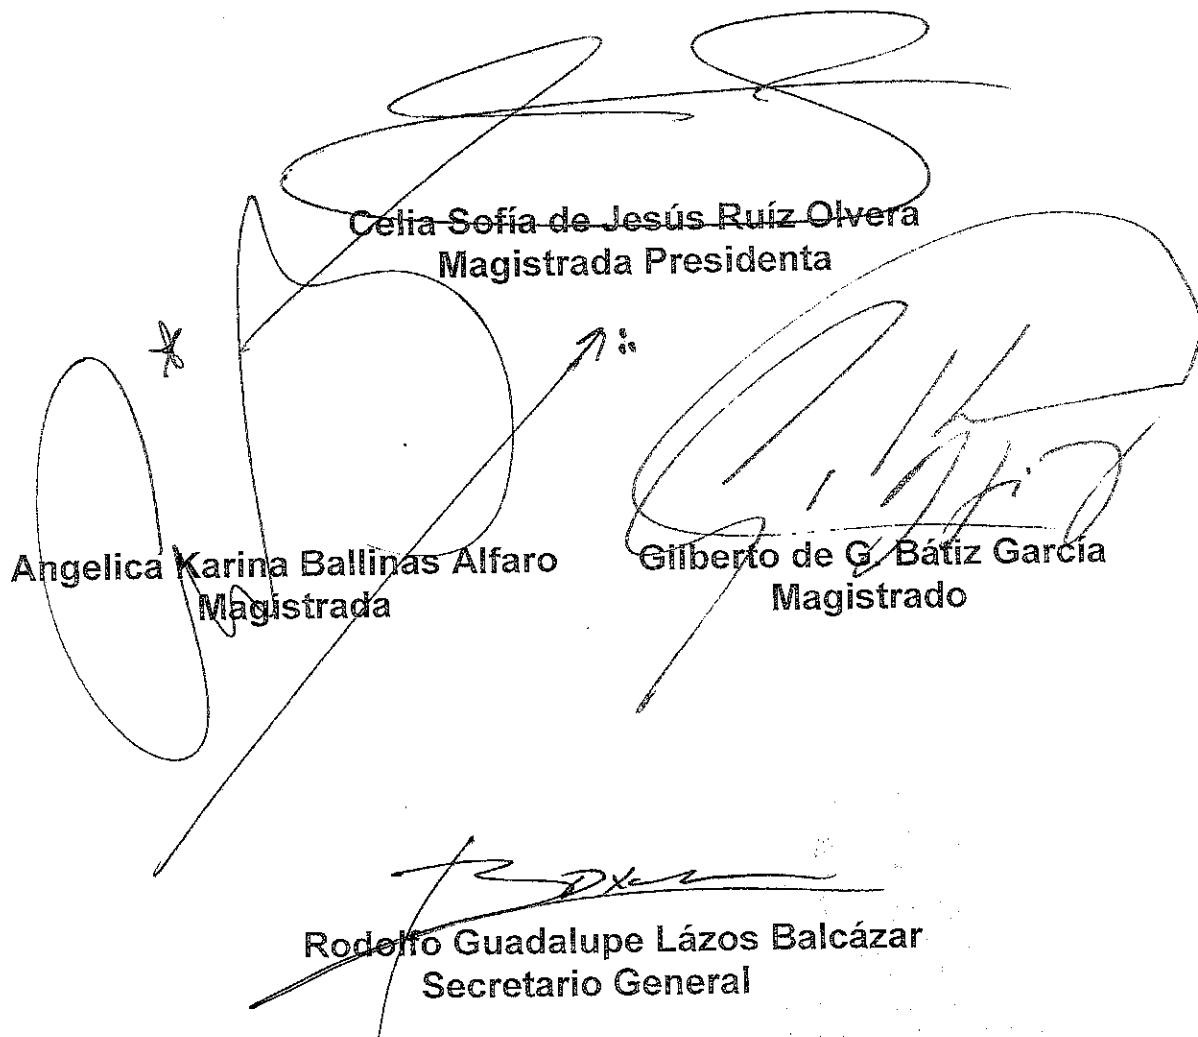 Celia Sofía de Jesús Ruíz Olvera
Magistrada Presidenta
Angelica Karina Ballinas Alfaro
Magistrada
Gilberto de G. Bátiz García
Magistrado
Rodolfo Guadalupe Lázos Balcázar
Secretario General